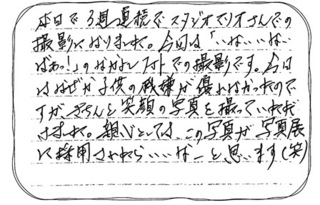 本日で3週連続でスタジオマリオさんでの
撮影になりました。今回は「いないいない
ばぁっ!」のなかよしフォトでの撮影です。今日
はなぜか子供の機嫌が優れなかったので
すが、きちんと笑顔の写真を撮っていただ
きました。親バカとしては、この写真が写真展
に採用されたら・・・いいなーと思います(笑)